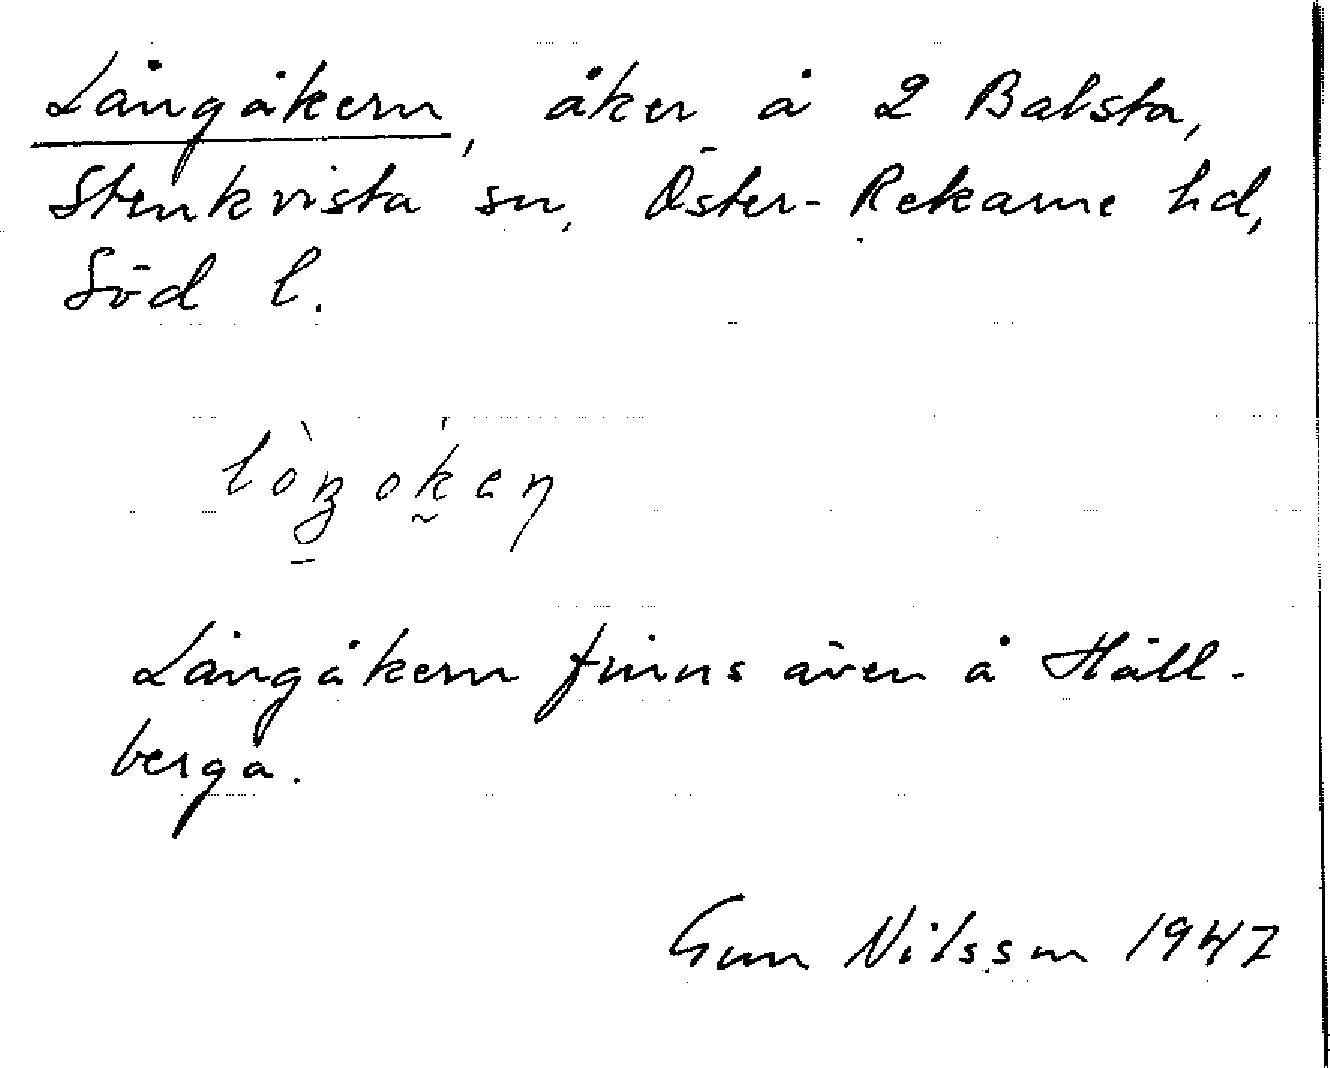 Långåkern, åker å 2 Balsta,
Stenkvista sn, Öster-Rekarne hd,
Söd l.
Långåkern finns även å Häll-
berga.
Gun Nilsson 1947